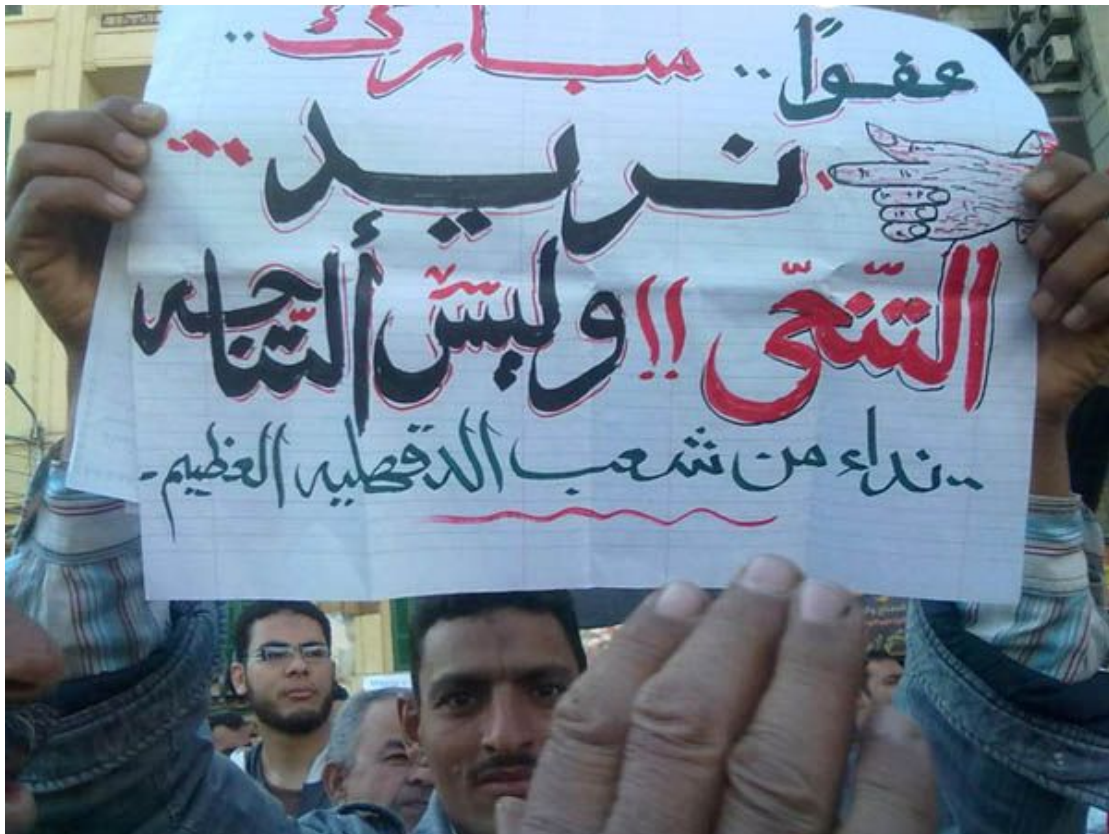 عفوًا .. مبارك ..
نريد ...
التنحّى !! وليس ألتّناحه
.. نداء من شعب الدقهليه العظيم -